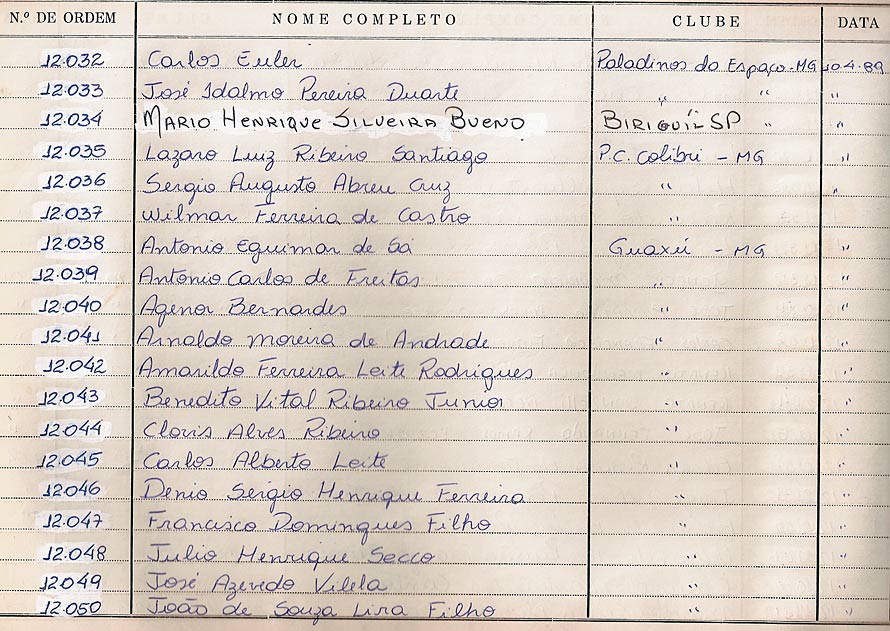 N.º DE ORDEM NOME COMPLETO CLUBE DATA
12.032 Carlos Euler Paladinos do Espaço-MG 10.4.89
12.033 José Idalmo Pereira Duarte " " "
12.034 MARIO HENRIQUE SILVEIRA BUENO BIRIGUÍ-SP " "
12.035 Lazaro Luiz Ribeiro Santiago P.C. Colibri - MG "
12.036 Sergio Augusto Abreu Cruz " "
12.037 Wilmar Ferreira de Castro " "
12.038 Antonio Eguimar de Sá Guaxú - MG "
12.039 Antonio Carlos de Freitas " "
12.040 Agenor Bernardes " "
12.041 Arnaldo Moreira de Andrade " "
12.042 Amarildo Ferreira Leite Rodrigues " "
12.043 Benedito Vital Ribeiro Junior " "
12.044 Clovis Alves Ribeiro " "
12.045 Carlos Alberto Leite " "
12.046 Denio Sergio Henrique Ferreira " "
12.047 Francisco Domingues Filho " "
12.048 Julio Henrique Secco " "
12.049 José Azevedo Vilela " "
12.050 João de Souza Lira Filho " "